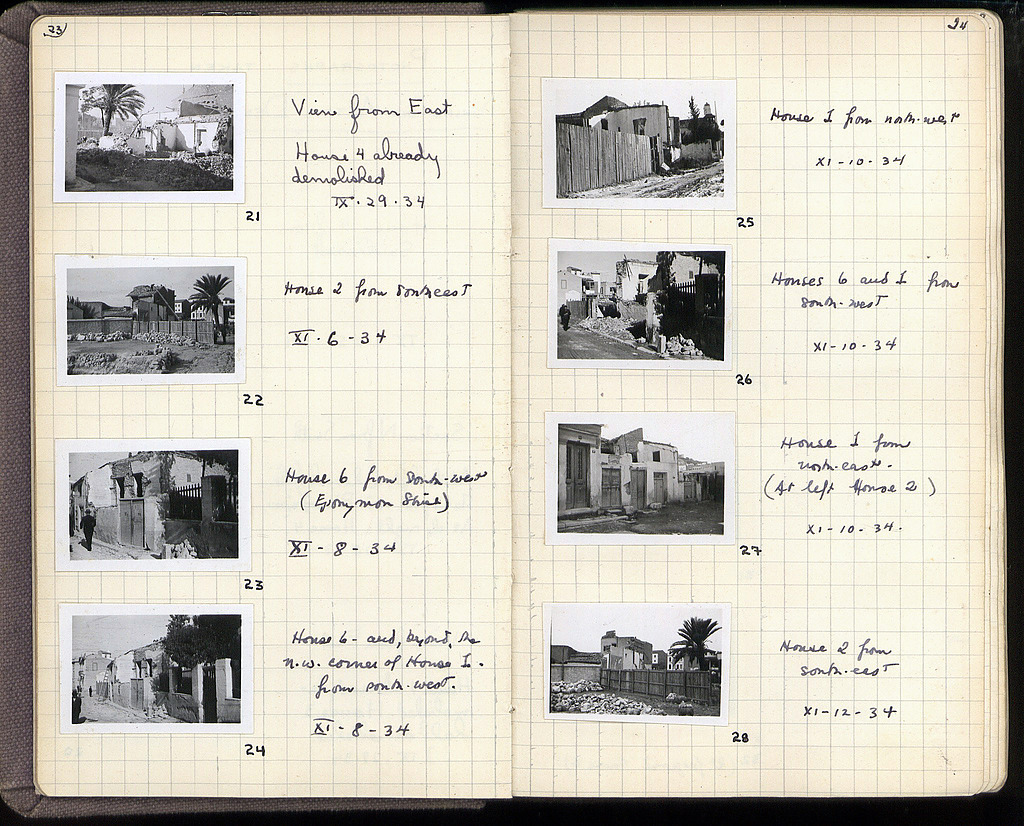 23
View from East
House 4 already
demolished
IX · 29 · 34
21
House 2 from southeast
XI · 6 - 34
22
House 6 from south-west
(Eponymon Street)
XI - 8 - 34
23
House 6 - and, beyond, the
n.w. corner of House I.
from south-west.
XI - 8 - 34
24
24
House I from north-west
XI - 10 - 34
25
Houses 6 and I from
south-west
XI - 10 - 34
26
House I from
north-east.
(At left House 2)
XI - 10 - 34.
27
House 2 from
south-east
XI - 12 - 34
28